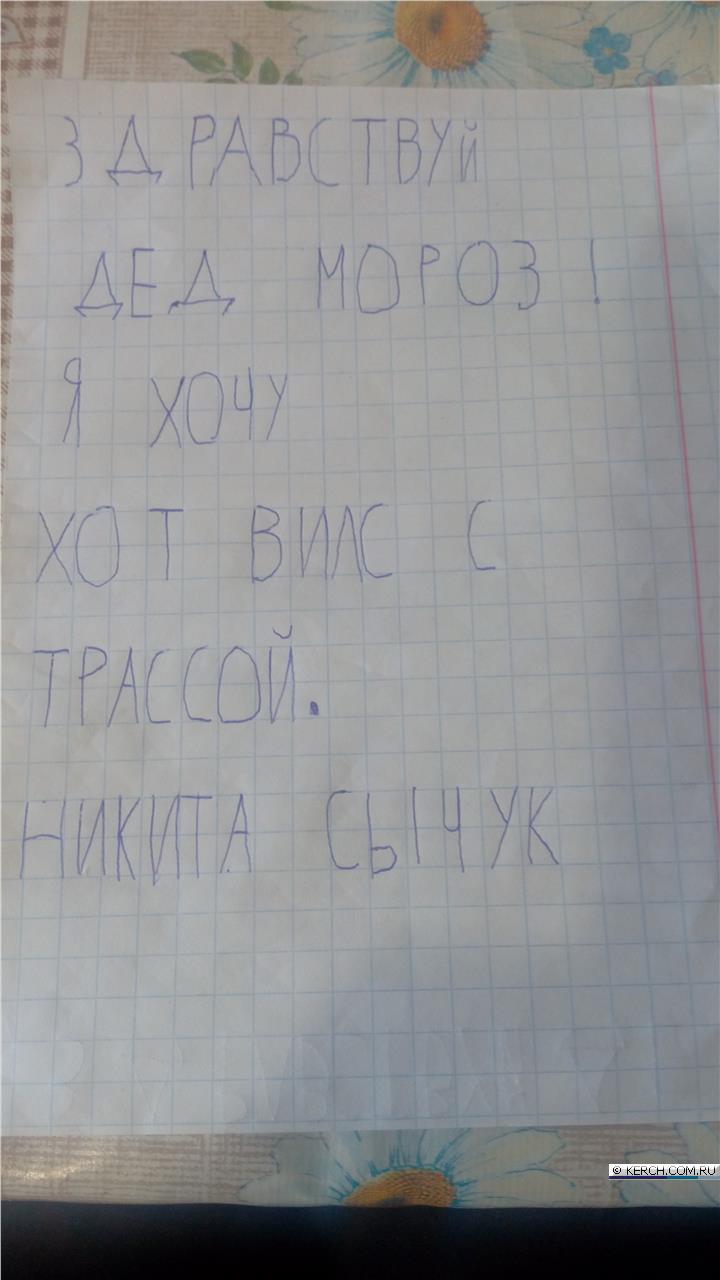 ЗДРАВСТВУЙ
ДЕД МОРОЗ!
Я ХОЧУ
ХОТ ВИЛС С
ТРАССОЙ.
НИКИТА СЫЧУК
© KERCH.COM.RU